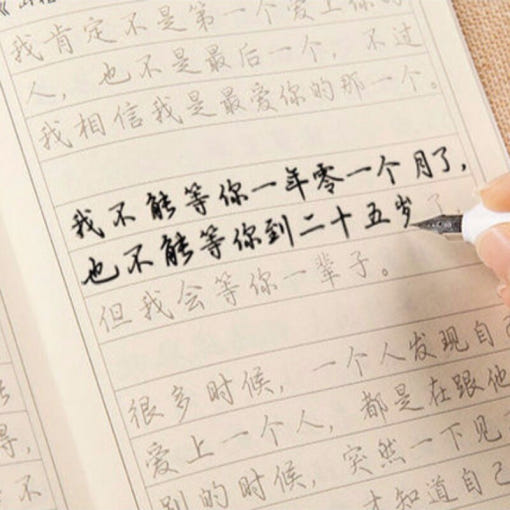 我肯定不是第一个爱上你的
人，也不是最后一个，不过
我相信我是最爱你的那一个。
我不能等你一年零一个月了，
也不能等你到二十五岁了
但我会等你一辈子。
很多时候，一个人发现自己
爱上一个人，都是在跟他
别的时候，突然一下见
才知道自己
得，
不